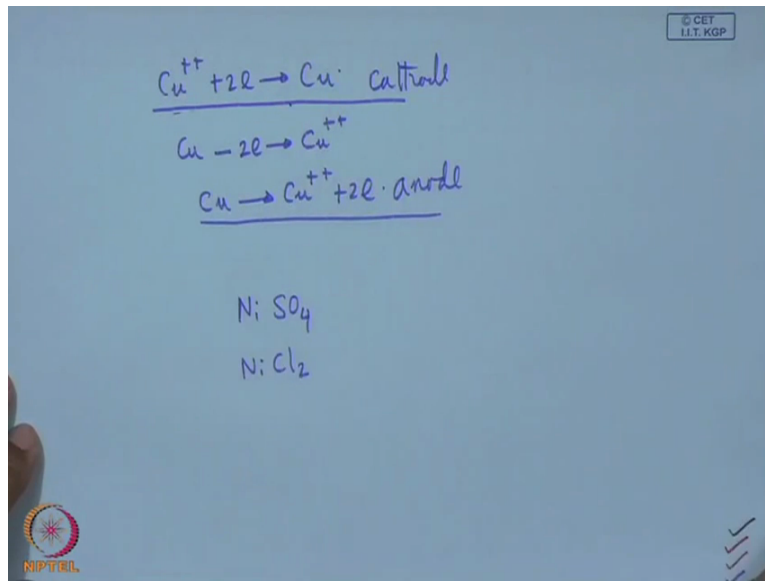 © CET
I.I.T. KGP
Cu++ +2e → Cu. Cathode
Cu – 2e → Cu++
Cu → Cu++ +2e. anode
NiSO4
NiCl2
NPTEL